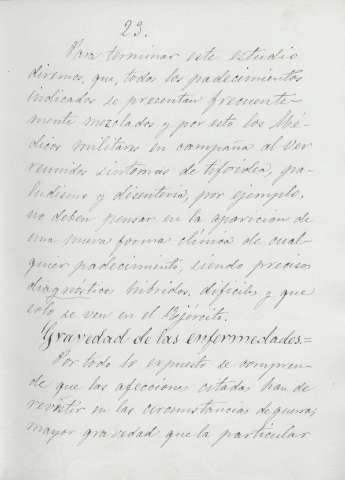 23.
Para terminar este estudio
diremos, que, todos los padecimientos
indicados se presentan frecuente-
mente mezclados y por esto los Mé-
dicos militares en campaña al ver
reunidos sintomas de tifoidea, pa-
ludismo y disenteria, por ejemplo,
no deben pensar en la aparicion de
una nueva forma clínica de cual-
quier padecimiento, siendo precisos
diagnosticos hibridos, dificiles y que
solo se ven en el Ejército.
Gravedad de las enfermedades.=
Por todo lo expuesto se compren-
de que las afecciones citadas han de
revestir en las circunstancias de guerra,
mayor gravedad que la particular